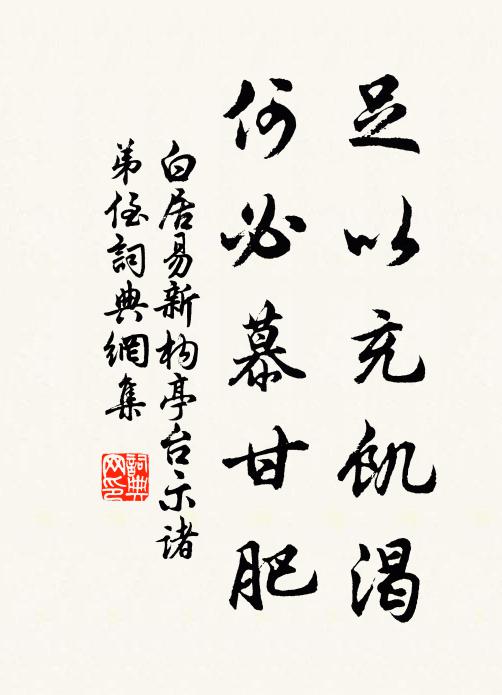 足以充飢渴
何必慕甘肥
白居易新构亭台示诸
弟侄詞典網集
詞典
网印